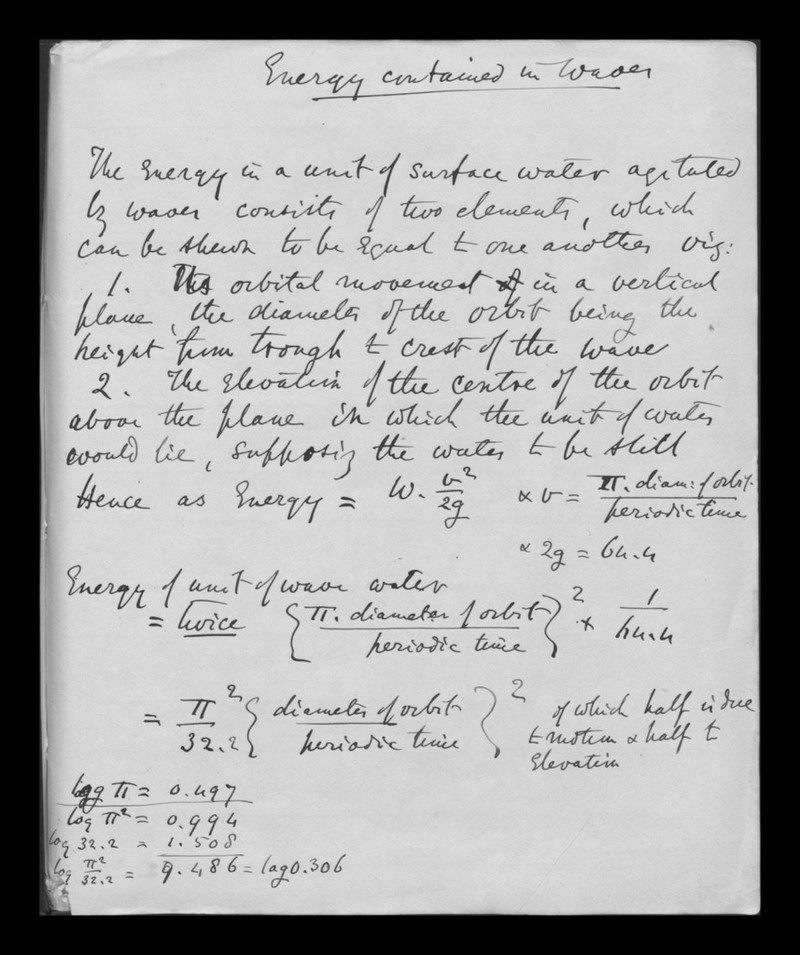 Energy contained in Waves
The Energy in a unit of surface water agitated
by waves consists of two elements, which
can be shewn to be Equal to one another viz:
1. The orbital movement in a vertical
plane, the diameter of the orbit being the
height from trough to crest of the wave
2. The Elevation of the centre of the orbit
above the plane in which the unit of water
would lie, supposing the water to be still
Hence as Energy = W. v²/2g & v = π. diam: of orbit / periodic time
& 2g = 64.4
Energy of unit of wave water
= twice {π. diameter of orbit / periodic time}² × 1/64.4
= π²/32.2 {diameter of orbit / periodic time}² of which half is due
to motion & half to
Elevation
log π = 0.497
log π² = 0.994
log 32.2 = 1.508
log π²/32.2 = 9.486 = log 0.306